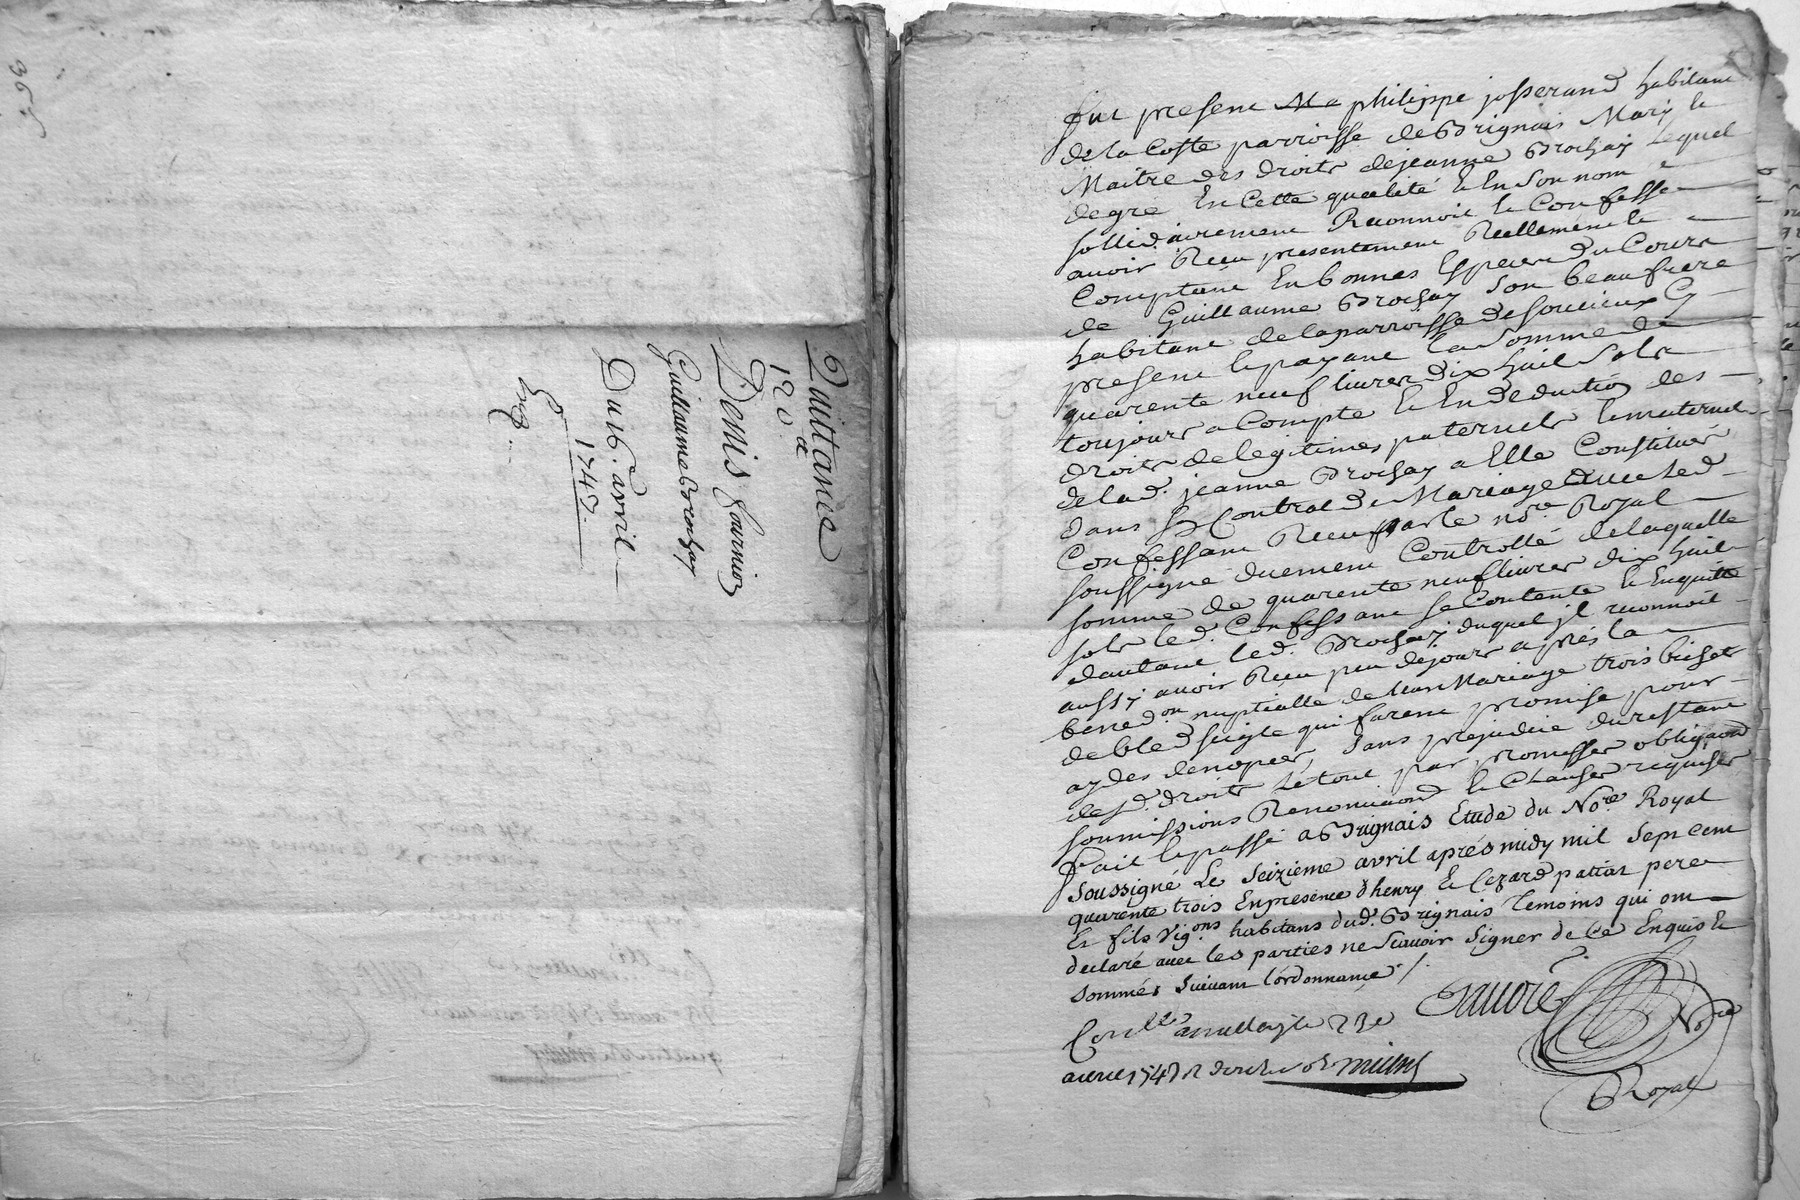 365
Quittance
120
a
Denis fournior
Guillaume Brochay
Du 16.e avril
1743.
Exp.
fut present Me philippe josserand habitant
de la Coste parroisse de Brignais Mary le
Maitre des droits de jeanne Brochay Lequel
de gré En Cette qualité Et En Son nom
sollidairement Reconnoit Et Confesse
avoir Receu presentement Reellement Et
Comptant En bonnes Especes du Cours
de Guillaume Brochay Son beau frere
habitant de la parroisse de soucieux Cy
present Et payant la Somme de
quarente neuf livres dix huit Sols
toujours a Compte Et En Deduction des
droits de legitimes paternels Et maternels
de lad. jeanne Brochay a Elle Constitués
dans Contrat de Mariage avec led.
Confessant Receu par le nore. Royal
soussigné duement Controllé de laquelle
somme de quarente neuf livres dix huit
sols led. Confessant se Contente Et En quitte
dautant led. Brochay duquel jl reconnoit
aussy avoir Receu peu de jours après la
bened.on nuptialle de leur Mariage trois bichets
de bled seigle qui furent promise pour
aydes de nopces, Sans prejudice du restant
desd. droits Le tout par promesses obligaons
soumissions Renonciaons Et Clauses requises
fait Et passé a Brignais Etude du Nore Royal
Soussigné Le Seizieme avril aprés midy mil Sept Cent
quarente trois En presence d'henry Et Cezard pattar pere
Et fils Vig.ons habitans dud. Brignais temoins qui ont
declaré avec les parties ne Scavoir Signer de Ce Enquis Et
Sommés Suivant l'ordonnance
Nore
Royal
Con.lle 23e
avril 1743 R douze sols